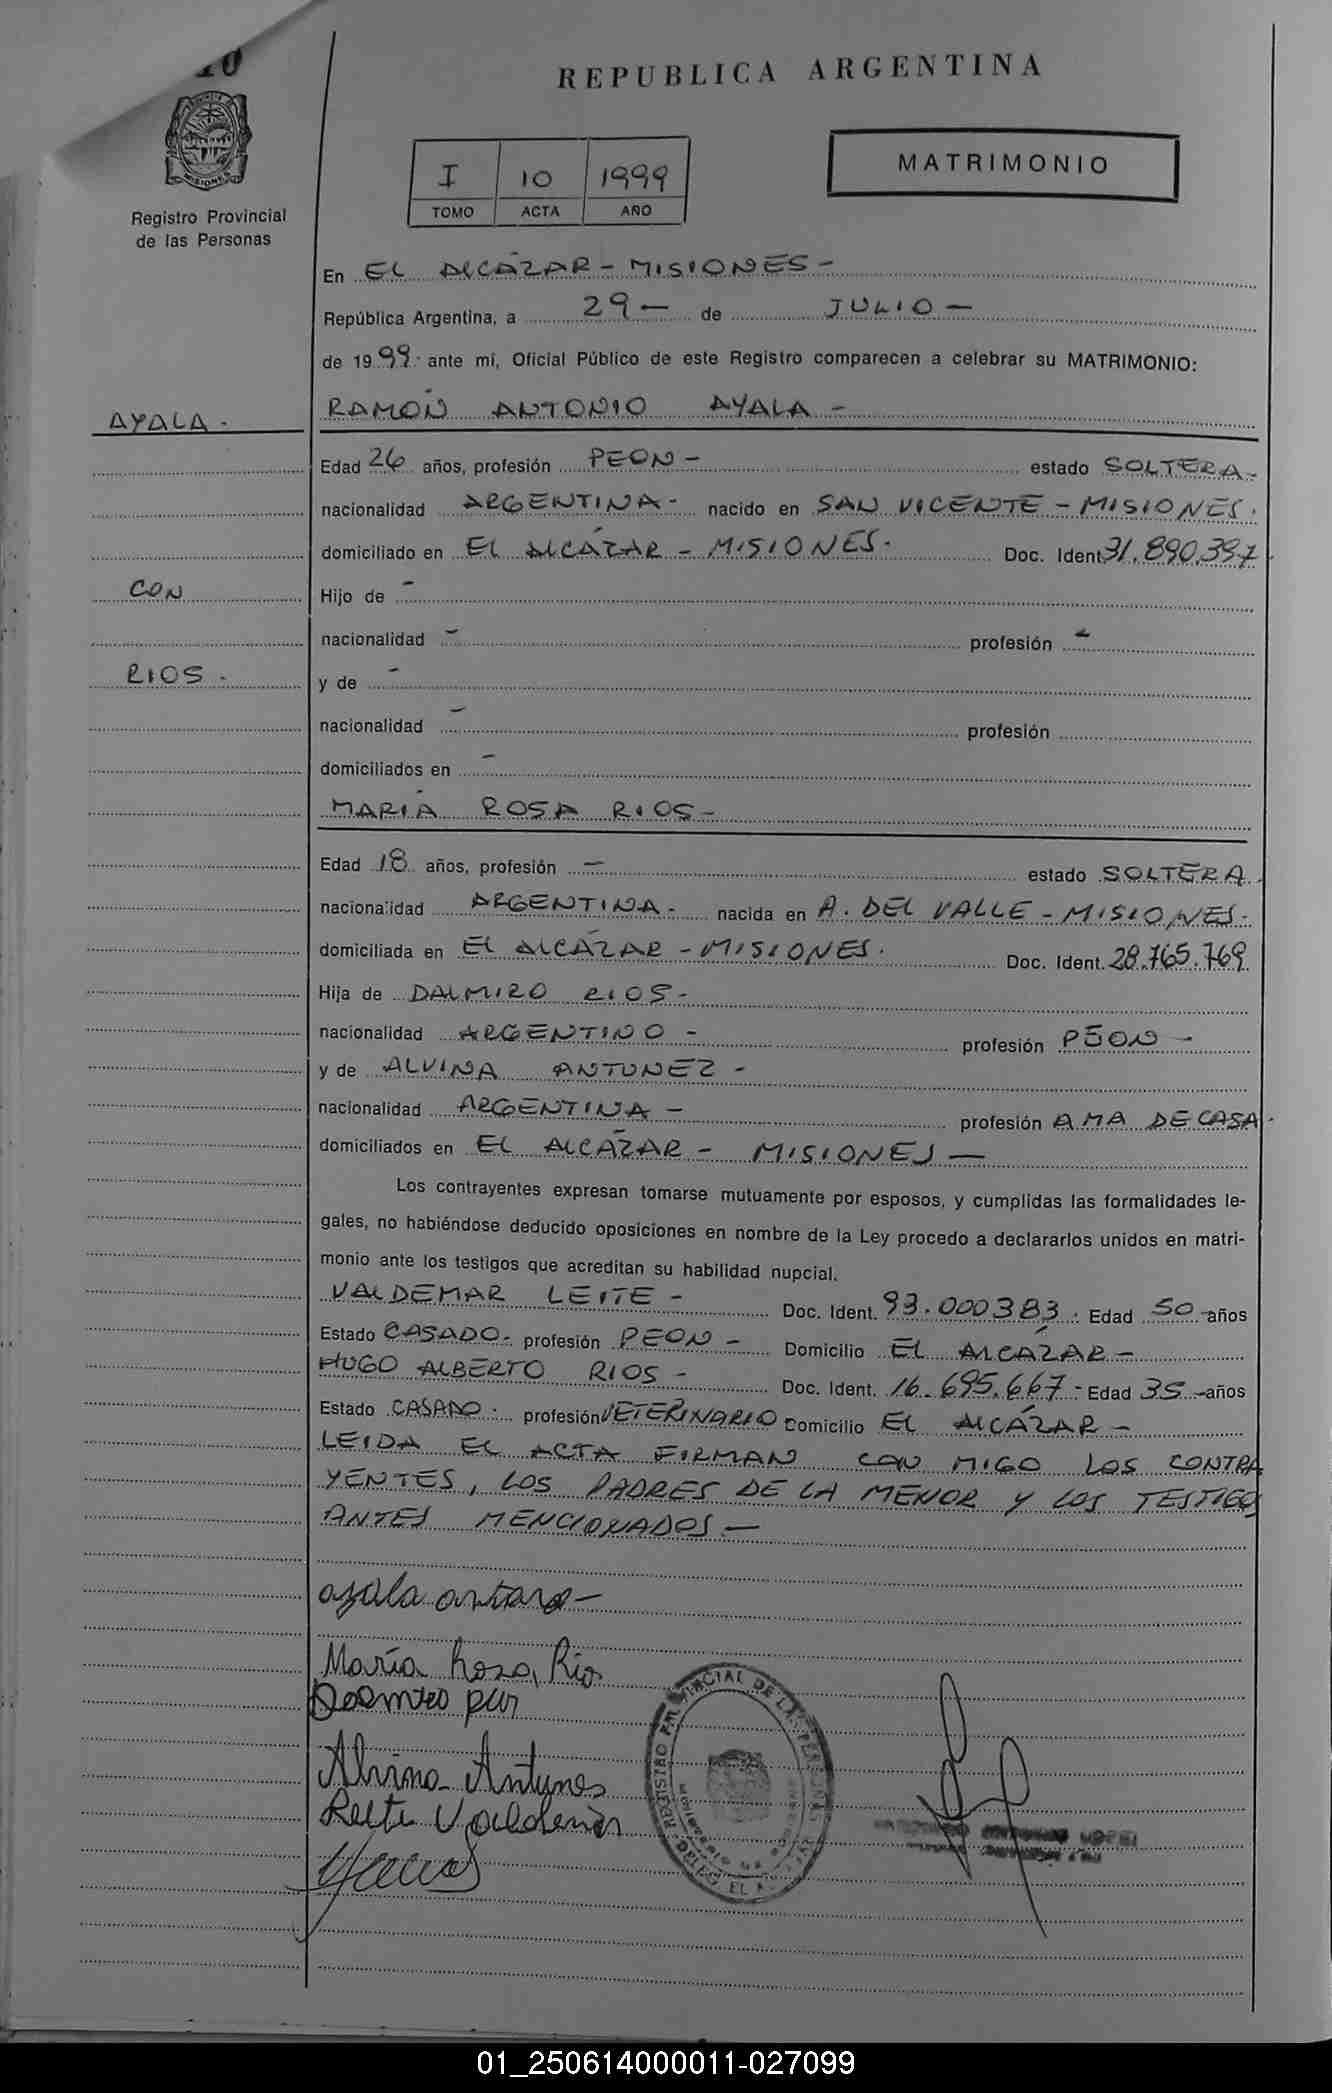 10
REPUBLICA ARGENTINA
MISIONES
Registro Provincial
de las Personas
I 10 1999
TOMO ACTA AÑO
MATRIMONIO
En EL ALCÁZAR - MISIONES -
República Argentina, a 29 - de JULIO -
de 1999 ante mí, Oficial Público de este Registro comparecen a celebrar su MATRIMONIO:
AYALA -
RAMÓN ANTONIO AYALA -
Edad 26 años, profesión PEON - estado SOLTERA -
nacionalidad ARGENTINA - nacido en SAN VICENTE - MISIONES.
domiciliado en EL ALCÁZAR - MISIONES. Doc. Ident. 31.890.397
CON
Hijo de -
nacionalidad - profesión -
RIOS -
y de -
nacionalidad - profesión
domiciliados en -
MARÍA ROSA RIOS -
Edad 18 años, profesión - estado SOLTERA.
nacionalidad ARGENTINA - nacida en A. DEL VALLE - MISIONES.
domiciliada en EL ALCÁZAR - MISIONES. Doc. Ident. 28.765.769
Hija de DALMIRO RIOS -
nacionalidad ARGENTINO - profesión PEON -
y de ALVINA ANTUNEZ -
nacionalidad ARGENTINA - profesión AMA DE CASA.
domiciliados en EL ALCÁZAR - MISIONES -
Los contrayentes expresan tomarse mutuamente por esposos, y cumplidas las formalidades le-
gales, no habiéndose deducido oposiciones en nombre de la Ley procedo a declararlos unidos en matri-
monio ante los testigos que acreditan su habilidad nupcial.
VALDEMAR LEITE - Doc. Ident. 93.000383. Edad 50 años
Estado CASADO. profesión PEON - Domicilio EL ALCÁZAR -
HUGO ALBERTO RIOS - Doc. Ident. 16.695.667 - Edad 35 años
Estado CASADO. profesión VETERINARIO Domicilio EL ALCÁZAR -
LEIDA EL ACTA FIRMAN CON MIGO LOS CONTRA
YENTES, LOS PADRES DE LA MENOR Y LOS TESTIGOS
ANTES MENCIONADOS -
ayala
María Rosa, Rio
Alvina Antunes
REGISTRO PROVINCIAL DE LAS PERSONAS
DELEG. EL
01_250614000011-027099